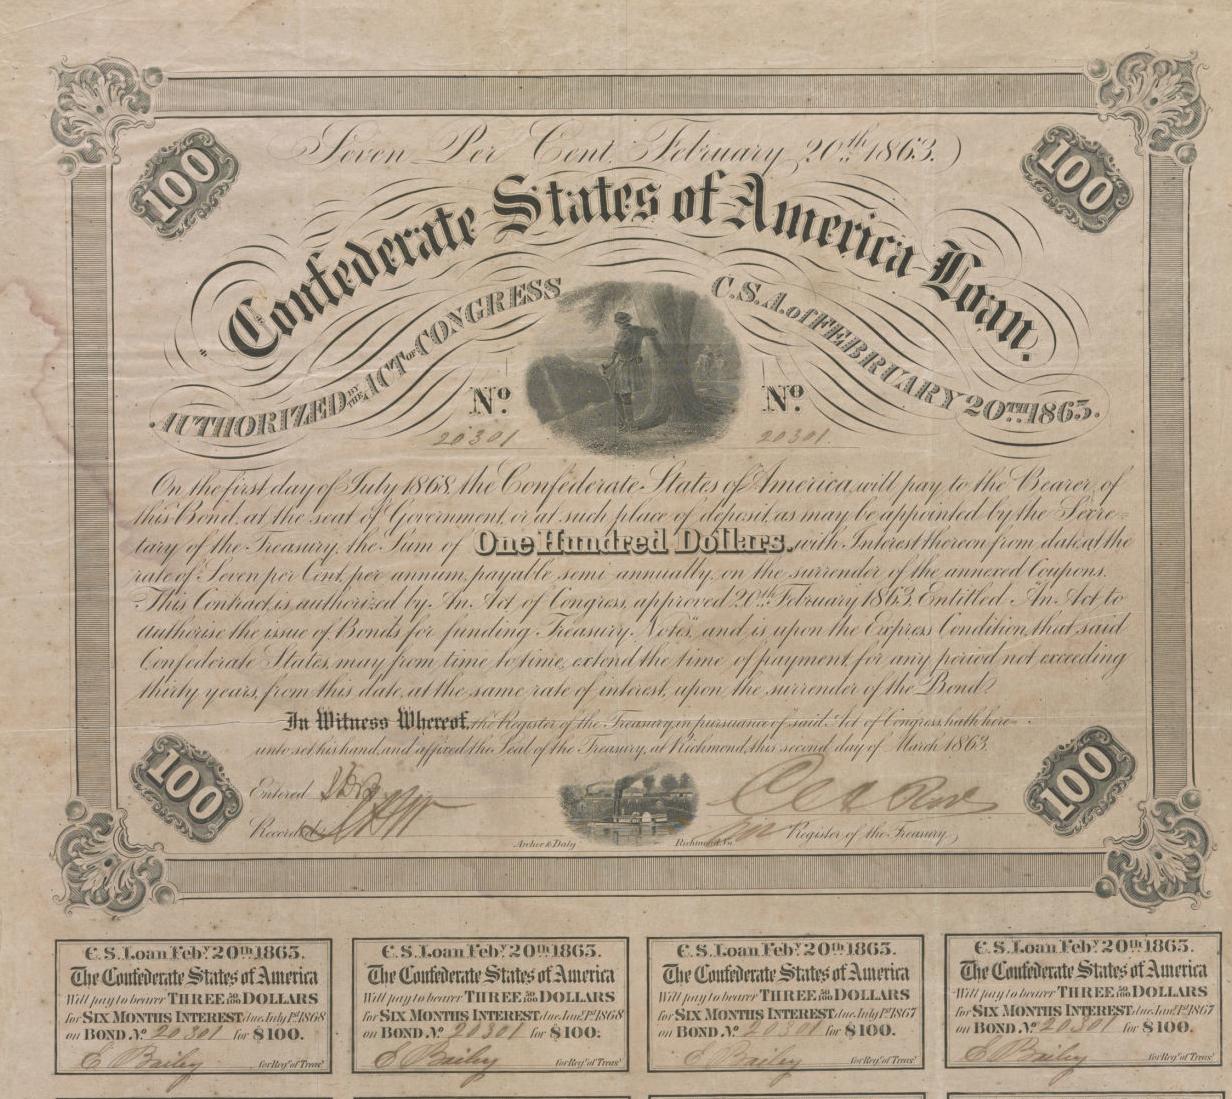 100
100
Seven Per Cent. February 20th 1863.
Confederate States of America Loan.
AUTHORIZED BY THE ACT OF CONGRESS C.S.A. of FEBRUARY 20TH 1863.
No. No.
20301 20301.
On the first day of July 1868, the Confederate States of America, will pay to the Bearer, of
this Bond, at the seat of Government, or at such place of deposit, as may be appointed by the Secre-
tary of the Treasury, the Sum of One Hundred Dollars. with Interest thereon from date, at the
rate of Seven per Cent, per annum, payable semi annually, on the surrender of the annexed Coupons.
This Contract, is authorized by An Act of Congress, approved 20th February 1863. Entitled "An Act to
authorise the issue of Bonds for funding Treasury Notes," and is upon the Express Condition, that said
Confederate States, may from time to time, extend the time of payment, for any period not exceeding
thirty years, from this date, at the same rate of interest, upon the surrender of the Bond.
In Witness Whereof, the Register of the Treasury, in pursuance of said Act of Congress, hath here-
unto set his hand, and affixed the Seal of the Treasury, at Richmond, this second day of March 1863.
100
100
Entered
Recorded
Register of the Treasury
Archer & Daly Richmond, Va.
C.S. Loan Feby. 20th 1863.
The Confederate States of America
Will pay to bearer THREE 50/100 DOLLARS
for SIX MONTHS INTEREST due July 1st 1868
on BOND. No. 20301 for $100.
E Bailey for Regr. of Treasy.
C.S. Loan Feby. 20th 1863.
The Confederate States of America
Will pay to bearer THREE 50/100 DOLLARS
for SIX MONTHS INTEREST due Jany. 1st 1868
on BOND. No. 20301 for $100.
E Bailey for Regr. of Treasy.
C.S. Loan Feby. 20th 1863.
The Confederate States of America
Will pay to bearer THREE 50/100 DOLLARS
for SIX MONTHS INTEREST due July 1st 1867
on BOND. No. 20301 for $100.
E Bailey for Regr. of Treasy.
C.S. Loan Feby. 20th 1863.
The Confederate States of America
Will pay to bearer THREE 50/100 DOLLARS
for SIX MONTHS INTEREST due Jany. 1st 1867
on BOND. No. 20301 for $100.
E Bailey for Regr. of Treasy.